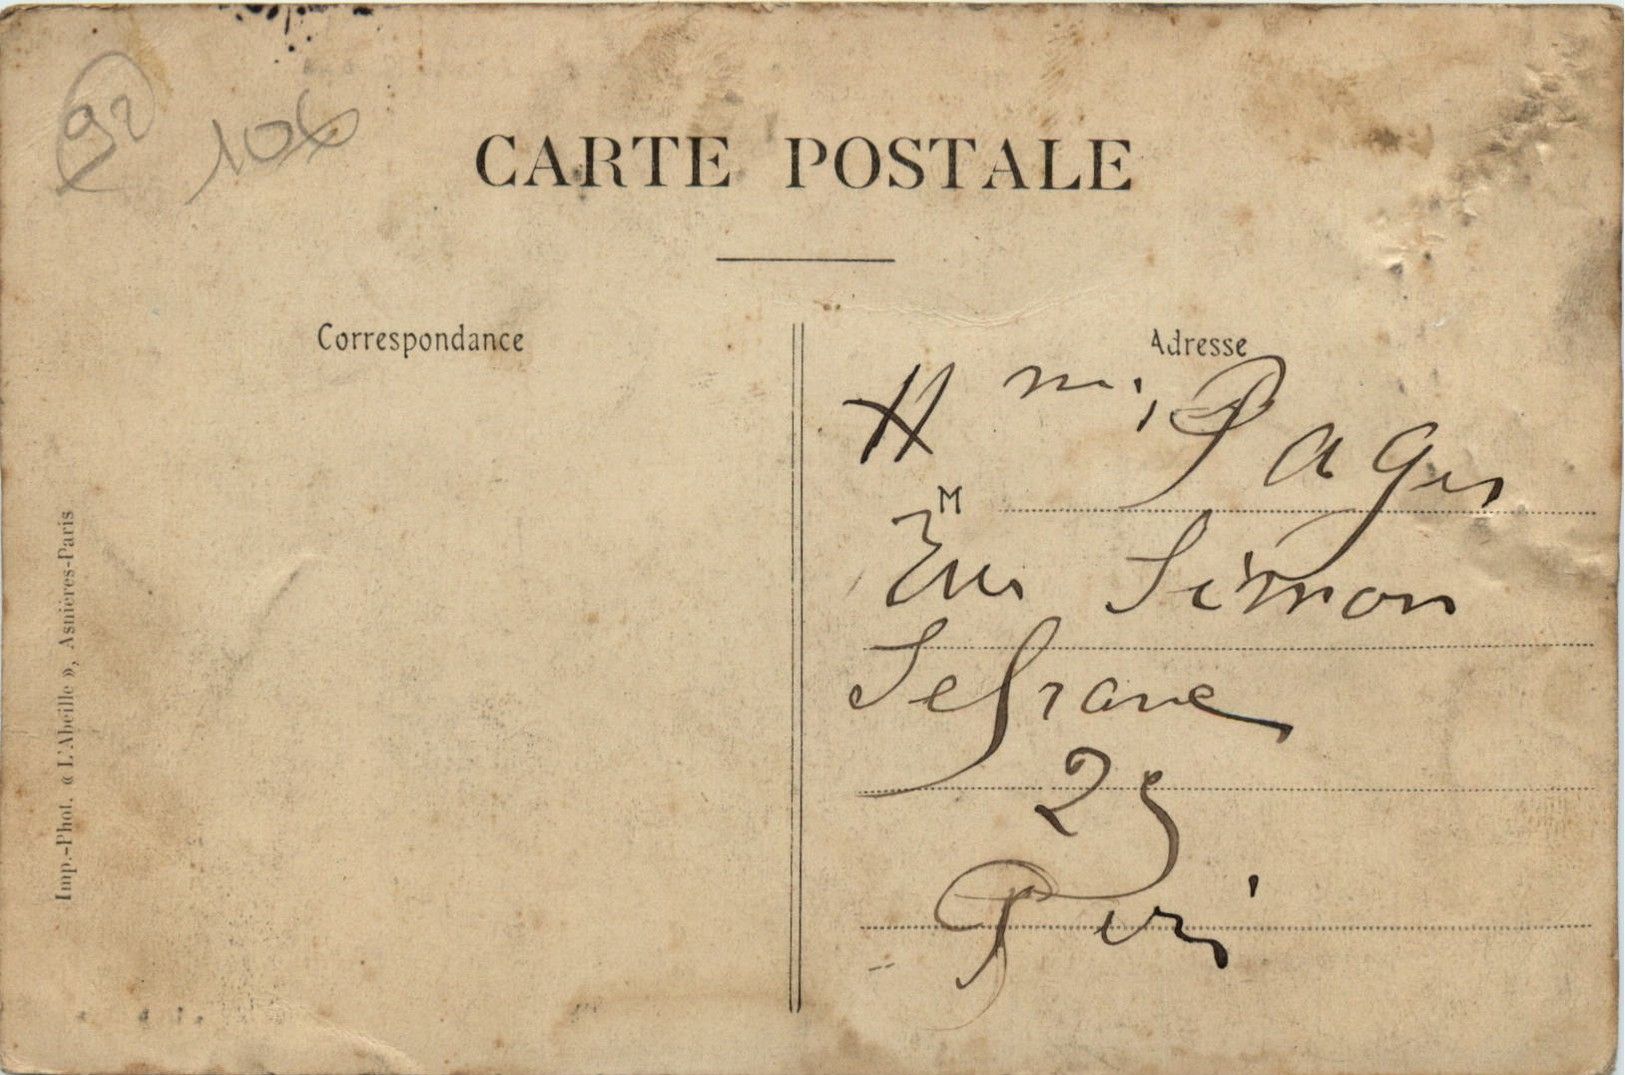 92
106
CARTE POSTALE
Correspondance
Adresse
Pages
M
Simon
Lefrane
25
Imp.-Phot. « L'Abeille », Asnières-Paris